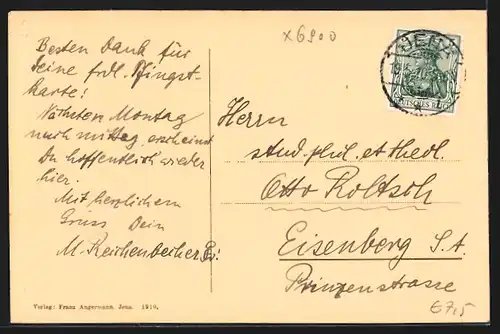 x6900
JENA
DEUTSCHES REICH
Besten Dank für
Deine frdl. Pfingst-
karte!
Nächsten Montag
nachmittag erscheinst
Du hoffentlich wieder
hier.
Mit herzlichem
Gruss Dein
M. Reichenbecher
Herrn
stud. phil. et theol.
Otto Roltsch
Eisenberg S.A.
Prinzenstrasse
Verlag: Franz Angermann, Jena. 1910.
€7,5